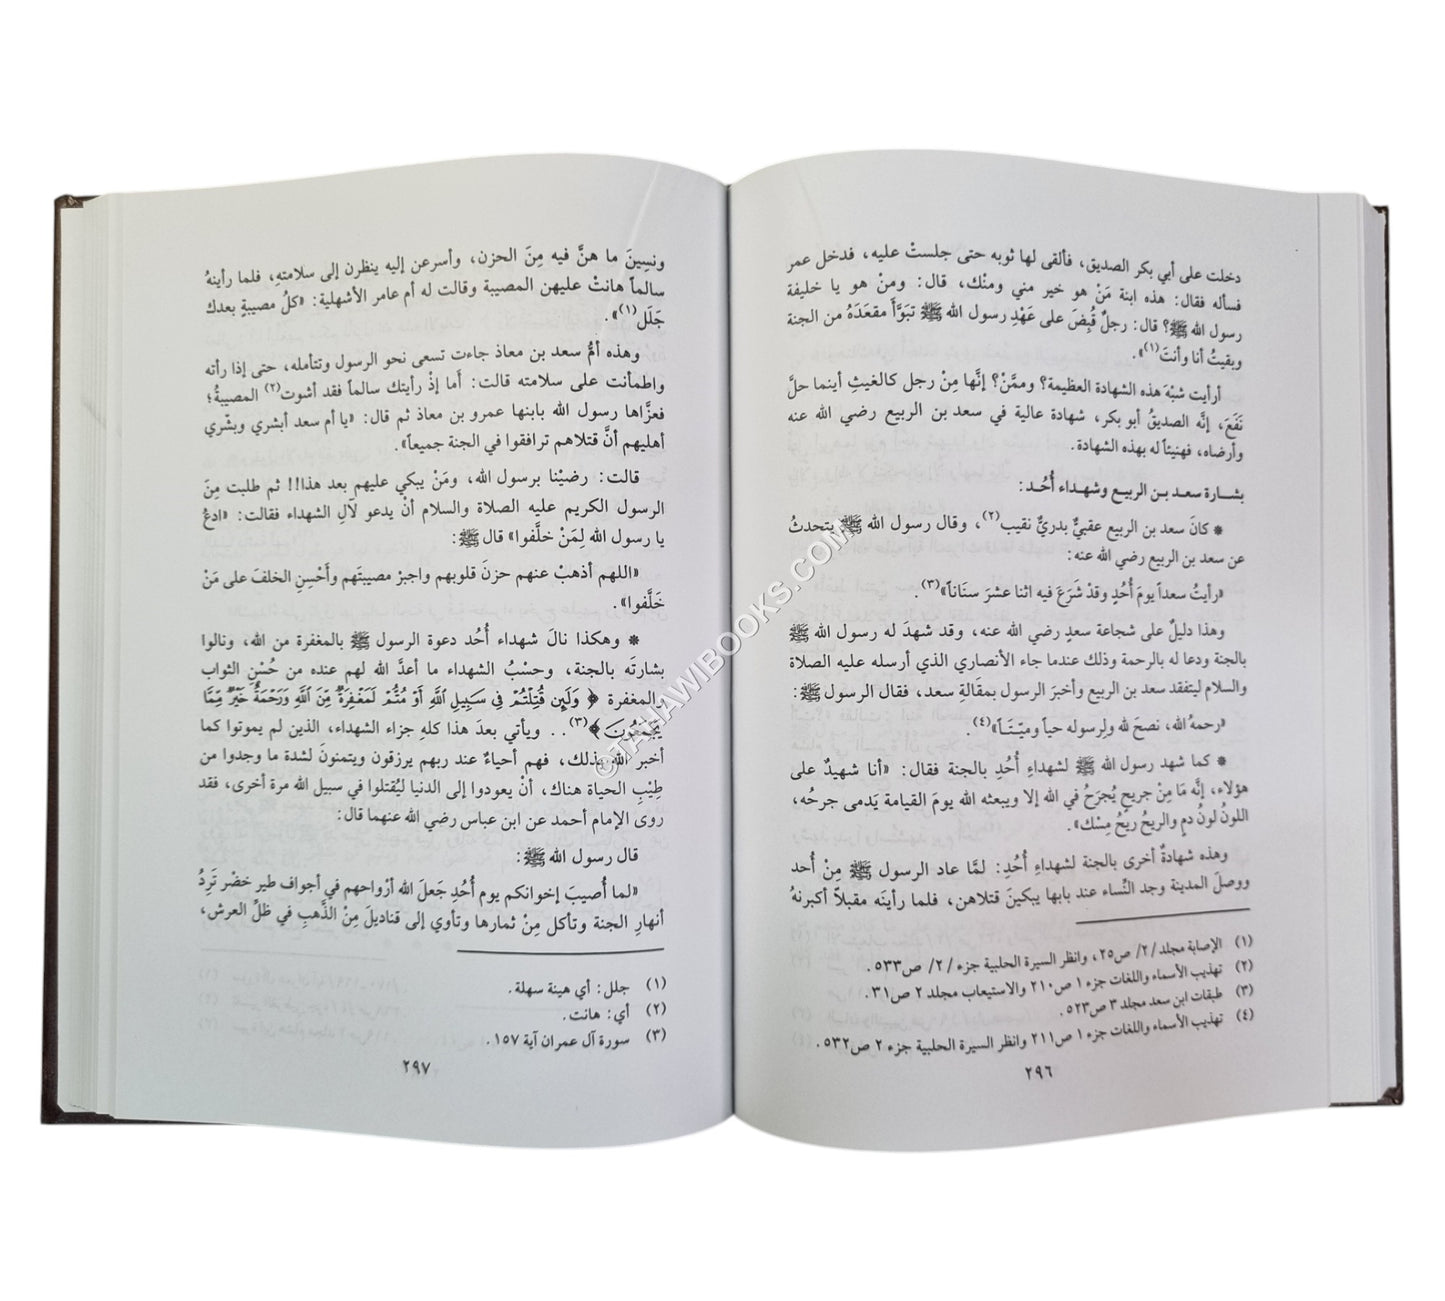 دخلت على أبي بكر الصديق، فألقى لها ثوبه حتى جلستْ عليه، فدخل عمر
فسأله فقال: هذه ابنة مَنْ هو خير مني ومنْك، قال: ومنْ هو يا خليفة
رسول الله ﷺ؟ قال: رجلٌ قُبِضَ على عَهْدِ رسول الله ﷺ تبَوَّأَ مقعَدَهُ من الجنة
وبقيتُ أنا وأنتَ(١)».
أرأيت شبْهَ هذه الشهادة العظيمة؟ وممَّنْ؟ إنَّها مِنْ رجل كالغيثِ أينما حلَّ
نَفَعَ، إنَّه الصديقُ أبو بكر، شهادة عالية في سعد بن الربيع رضي الله عنه
وأرضاه، فهنيئاً له بهذه الشهادة.
بشارة سعد بن الربيع وشهداء أُحُد:
* كانَ سعد بن الربيع عقبيٌّ بدريٌّ نقيب(٢)، وقال رسول الله ﷺ يتحدثُ
عن سعد بن الربيع رضي الله عنه:
«رأيتُ سعداً يومَ أُحُدٍ وقدْ شَرَعَ فيه اثنا عشرَ سنَاناً»(٣).
وهذا دليلٌ على شجاعة سعدٍ رضي الله عنه، وقد شهدَ له رسول الله ﷺ
بالجنة ودعا له بالرحمة وذلك عندما جاء الأنصاري الذي أرسله عليه الصلاة
والسلام ليتفقد سعد بن الربيع وأخبرَ الرسول بمقَالةِ سعد، فقال الرسول ﷺ:
«رحمهُ الله، نصحَ لله ولرسوله حياً وميّتاً»(٤).
* كما شهد رسول الله ﷺ لشهداءِ أُحُدِ بالجنة فقال: «أنا شهيدٌ على
هؤلاء، إنَّه مَا مِنْ جريحٍ يُجرَحُ في الله إلا ويبعثه الله يومَ القيامة يَدمى جرحُه،
اللونُ لونُ دمٍ والريحُ ريحُ مِسْك».
وهذه شهادةٌ أخرى بالجنة لشهداءِ أُحُدِ: لمَّا عاد الرسول ﷺ مِنْ أُحد
ووصلَ المدينة وجد النِّساء عند بابها يبكينَ قتلاهن، فلما رأينَه مقبلاً أكبرنهُ
(١) الإصابة مجلد /٢/ ص٢٥، وانظر السيرة الحلبية جزء /٢/ ص٥٣٣.
(٢) تهذيب الأسماء واللغات جزء ١ ص٢١٠ والاستيعاب مجلد ٢ ص٣١.
(٣) طبقات ابن سعد مجلد ٣ ص٥٢٣.
(٤) تهذيب الأسماء واللغات جزء ١ ص٢١١ وانظر السيرة الحلبية جزء ٢ ص٥٣٢.
٢٩٦
ونسِينَ ما هنَّ فيه مِنَ الحزن، وأسرعن إليه ينظرن إلى سلامتهِ، فلما رأينهُ
سالماً هانتْ عليهن المصيبة وقالت له أم عامر الأشهلية: «كلُ مصيبةٍ بعدك
جَلَل(١)».
وهذه أمُّ سعد بن معاذ جاءت تسعى نحو الرسول وتتأمله، حتى إذا رأته
واطمأنت على سلامته قالت: أما إذْ رأيتك سالماً فقد أشوت(٢) المصيبةُ؛
فعزَّاها رسول الله بابنها عمرو بن معاذ ثم قال: «يا أم سعد أبشري وبشّري
أهليهم أنَّ قتلاهم ترافقوا في الجنة جميعاً».
قالت: رضيْنا برسول الله، ومَنْ يبكي عليهم بعد هذا!! ثم طلبت مِنَ
الرسول الكريم عليه الصلاة والسلام أنْ يدعو لآلِ الشهداء فقالت: «ادعُ
يا رسول الله لِمَنْ خلَّفوا» قال ﷺ:
«اللهم أذهبْ عنهم حزنَ قلوبهم واجبرْ مصيبتَهم وأَحْسِنِ الخلفَ على مَنْ
خَلَّفوا».
* وهكذا نالَ شهداء أُحُد دعوة الرسول ﷺ بالمغفرة من الله، ونالوا
بشارتَه بالجنة، وحسْبُ الشهداء ما أعدَّ الله لهم عنده من حُسْنِ الثواب
والمغفرة ﴿ وَلَئِن قُتِلْتُمْ فِي سَبِيلِ اللَّهِ أَوْ مُتُّمْ لَمَغْفِرَةٌ مِّنَ اللَّهِ وَرَحْمَةٌ خَيْرٌ مِّمَّا
يَجْمَعُونَ ﴾(٣).. ويأتي بعدَ هذا كلهِ جزاء الشهداء، الذين لم يموتوا كما
أخبر الله بذلك، فهم أحياءٌ عند ربهم يرزقون ويتمنونَ لشدة ما وجدوا من
طِيْبِ الحياة هناك، أنْ يعودوا إلى الدنيا ليُقتلوا في سبيل الله مرة أخرى، فقد
روى الإمام أحمد عن ابن عباس رضي الله عنهما قال:
قال رسول الله ﷺ:
«لما أُصيبَ إخوانكم يوم أُحُدٍ جَعلَ الله أرْواحهم في أجواف طير خضْر تَرِدُ
أنهارِ الجنة وتأكل مِنْ ثمارها وتأوي إلى قناديلَ مِنْ الذَّهبِ في ظلِّ العرش،
(١) جلل: أي هينة سهلة.
(٢) أي: هانت.
(٣) سورة آل عمران آية ١٥٧.
٢٩٧
©TAHAWIBOOKS.COM